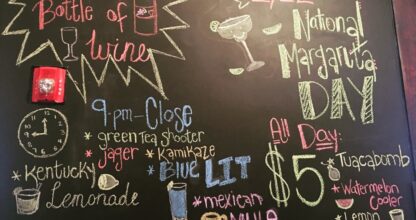 Bottle of
Wine
National
Margarita
DAY
9pm-Close
* green Tea Shooter
* Jager * Kamikaze
* Kentucky * BLUE LIT
Lemonade
* mexican
MULE
All Day:
$5
* Tuacabomb
* Watermelon
Cooler
* Lemon